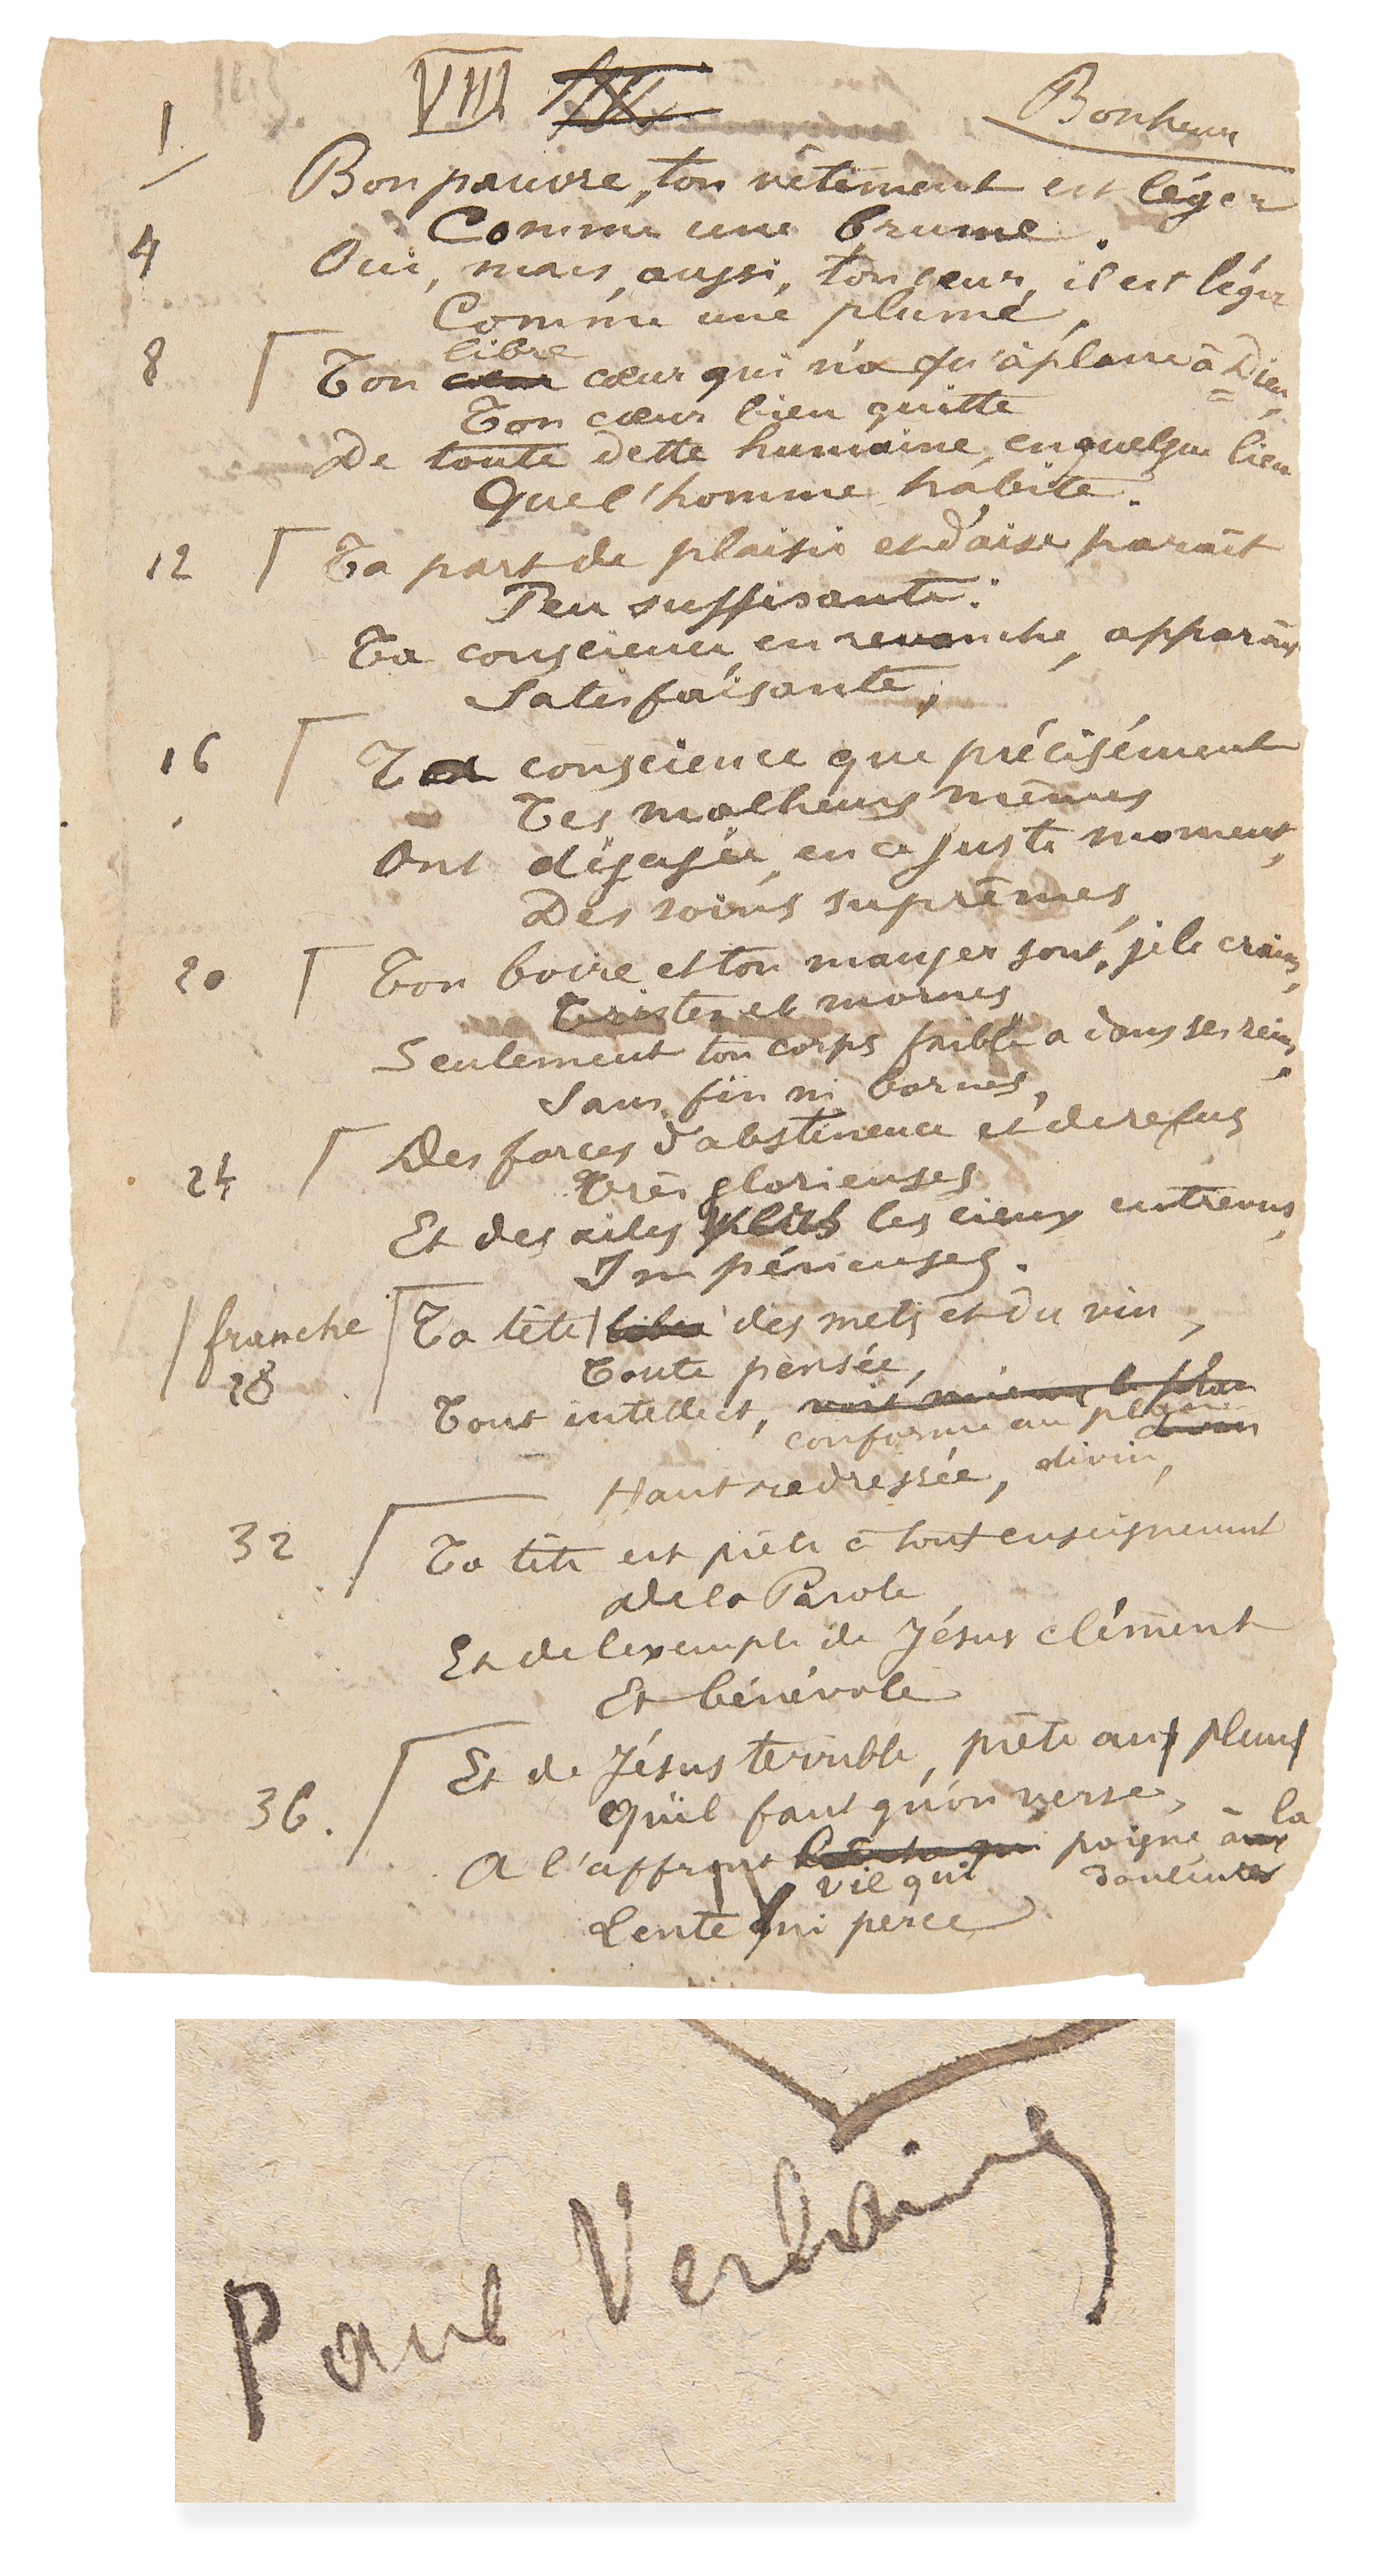 VIII
Bonheur
1
Bon pauvre, ton vêtement est léger
Comme une brume.
4
Oui, mais, aussi, ton cœur, il est léger
Comme une plume,
libre
8
Ton cœur qui n'a qu'à plaire à Dieu,
Ton cœur bien quitte
De toute dette humaine, en quelque lieu
Que l'homme habite.
12
Ta part de plaisir et d'aise paraît
Peu suffisante.
Ta conscience, en revanche, apparaît
Satisfaisante,
16
Ta conscience que précisément
Tes malheurs mêmes
Ont dégagée, en ce juste moment,
Des soins suprêmes,
20
Ton boire et ton manger sont, je le crains,
Tristes et mornes,
Seulement ton corps faible a dans ses reins,
Sans fin ni bornes,
Des forces d'abstinence et de refus
24
Très glorieuses
Et des ailes les cieux entrevus,
Impérieuses.
franche
Ta tête libre des mets et du vin,
28
Toute pensée,
Tout intellect, voit mieux le plan
conforme au plan divin
Haut redressée, divin,
32
Ta tête est prête à tout enseignement
De la Parole
Et de l'exemple de Jésus clément
Et bénévole
Et de Jésus terrible, prête aux pleurs
36.
Qu'il faut qu'on verse,
la
A l'affront poigne aux
vil qui douleurs
Lente qui perce
Paul Verlaine